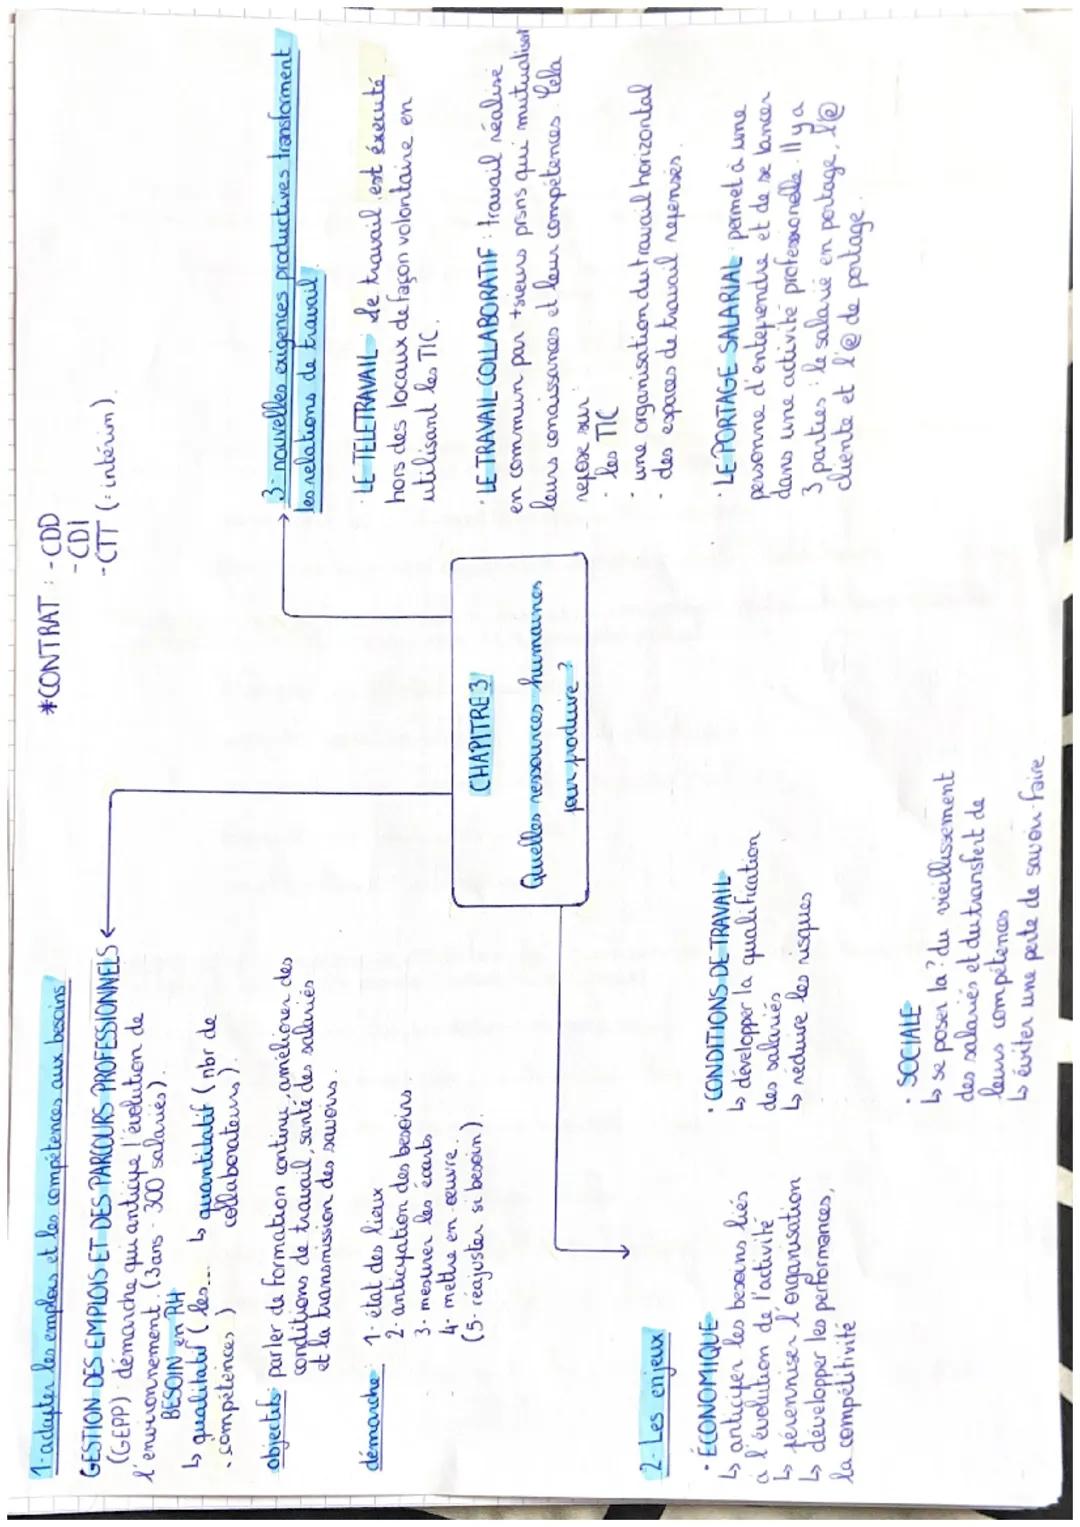 1-adapter les emplois et les compétences aux besoins
GESTION DES EMPLOIS ET DES PARCOURS PROFESSIONNELS
(GEPP) : démarche qui anticipe l'évolution de
l'environnement. (3ans - 300 salariés).
BESOIN en RH
↳ qualitatif ( les...
. compétences )
↳ quantitatif ( nbr de
collaborateurs ).
objectifs : parler de formation continue, améliorer des
conditions de travail, santé des salariés
et la transmission des savoirs.
démarche : 1- état des lieux
2- anticipation des besoins
3- mesurer les écarts
4- mettre en œuvre.
(5- réajuster si besoin).
*CONTRAT : - CDD
- CDI
- CTT (= intérim).
CHAPITRE 3
Quelles ressources humaines
pour produire ?
2- Les enjeux
· ÉCONOMIQUE
↳ anticiper les besoins liés
à l'évolution de l'activité
↳ pérenniser l'organisation
↳ développer les performances,
la compétitivité
· CONDITIONS DE TRAVAIL
↳ développer la qualification
des salariés
↳ réduire les risques
· SOCIALE
↳ se poser la ? du vieillissement
des salariés et du transfert de
leurs compétences
↳ éviter une perte de savoir-faire
3- nouvelles exigences productives transforment
les relations de travail
· LE TELETRAVAIL : le travail est éxecuté
hors des locaux de façon volontaire en
utilisant les TIC.
· LE TRAVAIL COLLABORATIF : travail réalise
en commun par +sieurs prsns qui mutualisent
leurs conaissances et leur compétences. Cela
repose sur :
· les TIC
· une organisation du travail horizontal
· des espaces de travail repensés.
· LE PORTAGE SALARIAL : permet à une
personne d'entependre et de se lancer
dans une activité professionelle. Il y a
3 parties : le salarié en portage, l'@
cliente et l'@ de portage.